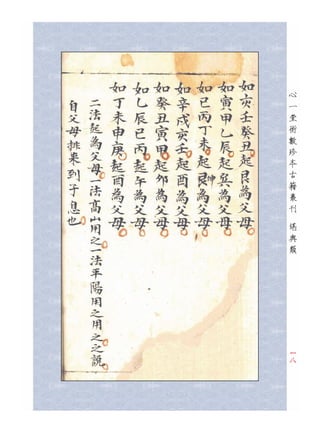 心一堂術數珍本古籍叢刊 堪輿類
一八
如亥壬癸丑起艮為父母
如寅甲乙辰起巽為父母
如巳丙丁未起坤為父母
如辛戌亥壬起酉為父母
如癸丑寅甲起卯為父母
如乙辰巳丙起午為父母
如丁未申庚起酉為父母
二法起為父母一法高山用之一法平陽用之用之之說
自父母排來列子息也